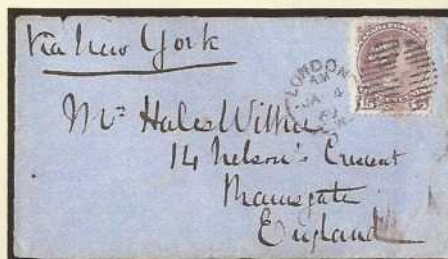 Via New York
LONDON
AM
JA 4
15
Mrs Hales Wilkie
14 Nelson's Crescent
Ramsgate
England